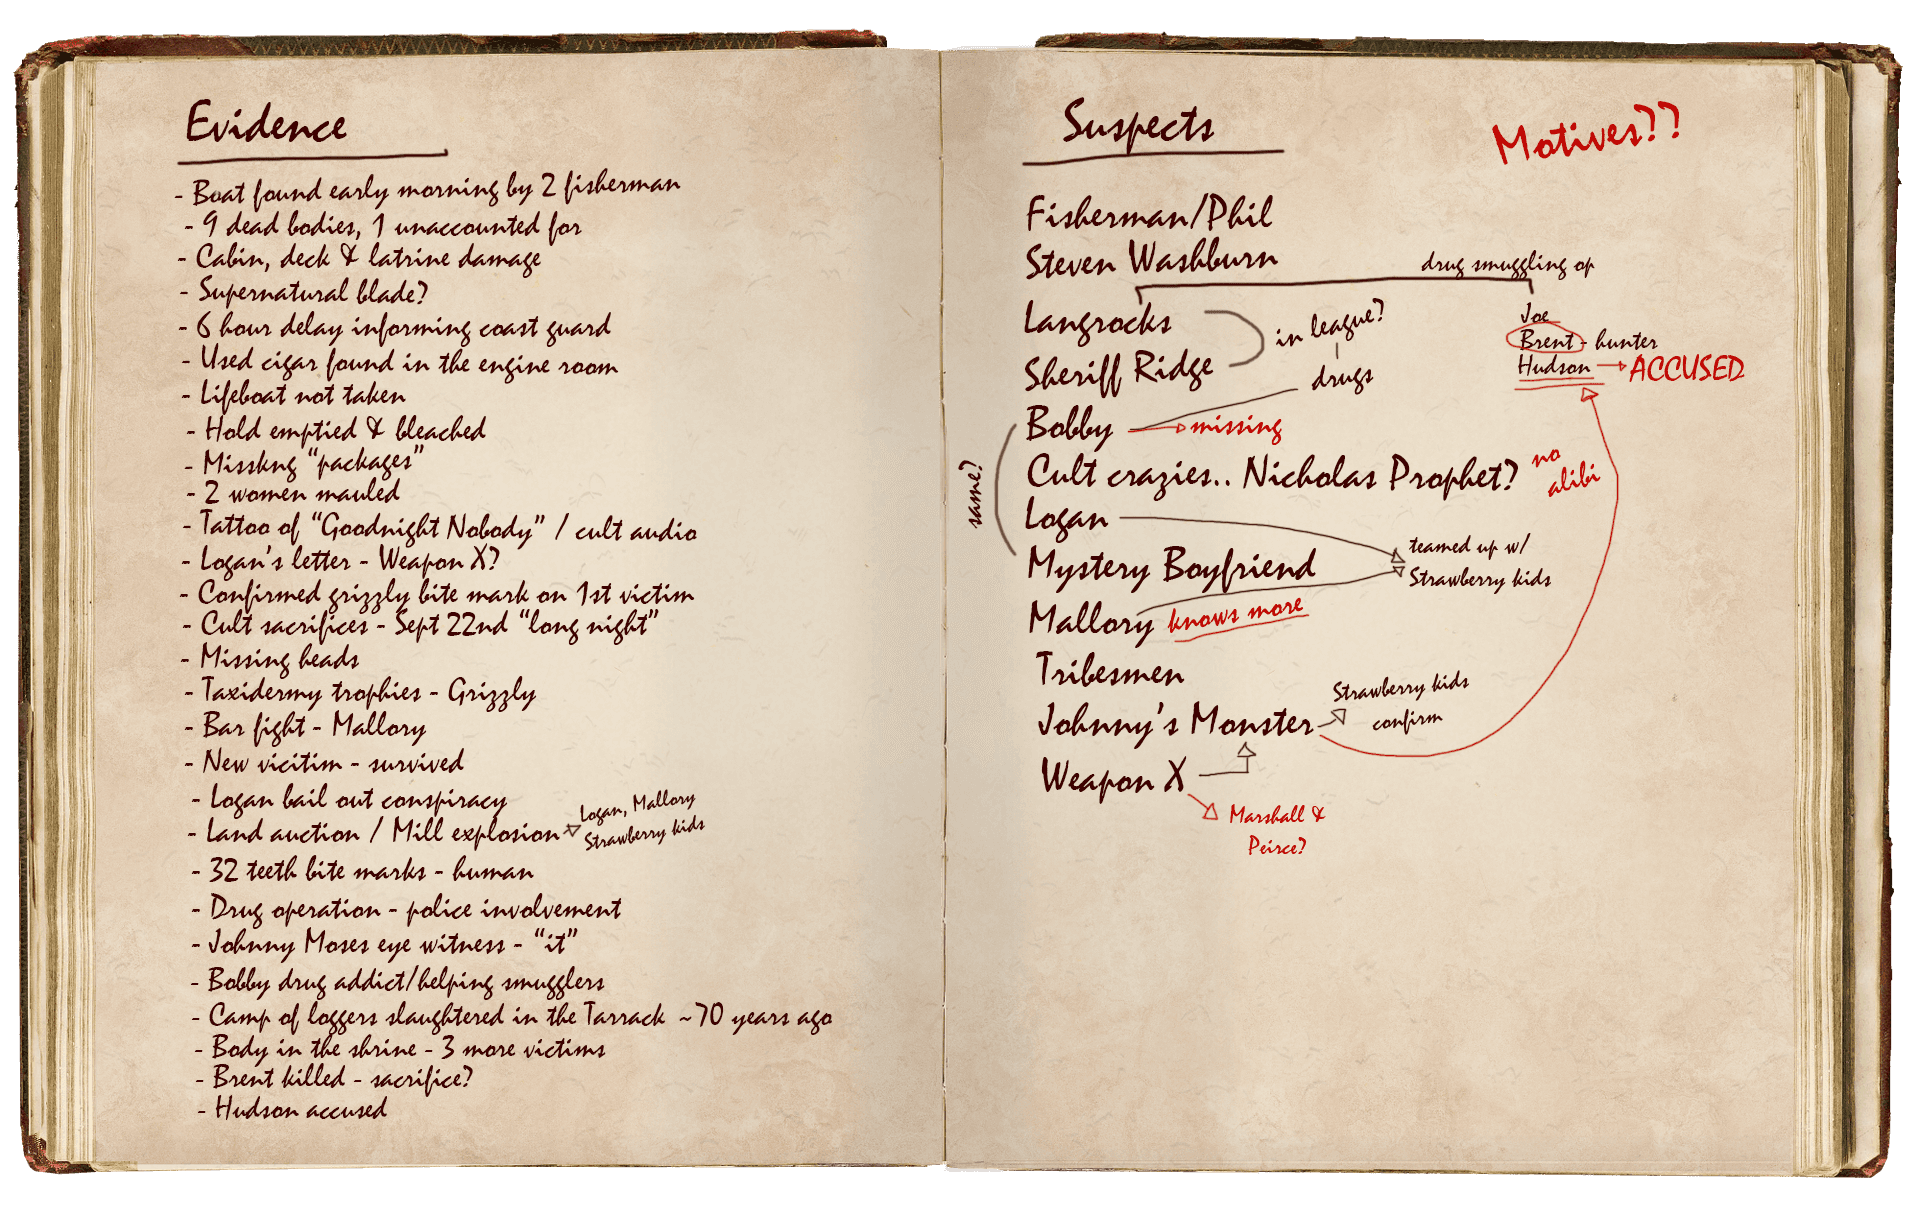 Evidence
- Boat found early morning by 2 fisherman
- 9 dead bodies, 1 unaccounted for
- Cabin, deck & latrine damage
- Supernatural blade?
- 6 hour delay informing coast guard
- Used cigar found in the engine room
- Lifeboat not taken
- Hold emptied & bleached
- Misskng "packages"
- 2 women mauled
- Tattoo of "Goodnight Nobody" / cult audio
- Logan's letter - Weapon X?
- Confirmed grizzly bite mark on 1st victim
- Cult sacrifices - Sept 22nd "long night"
- Missing heads
- Taxidermy trophies - Grizzly
- Bar fight - Mallory
- New vicitim - survived
- Logan bail out conspiracy
- Land auction / Mill explosion
Logan, Mallory
Strawberry kids
- 32 teeth bite marks - human
- Drug operation - police involvement
- Johnny Moses eye witness - "it"
- Bobby drug addict/helping smugglers
- Camp of loggers slaughtered in the Tarrack ~70 years ago
- Body in the shrine - 3 more victims
- Brent killed - sacrifice?
- Hudson accused
Suspects
Motives??
Fisherman/Phil
Steven Washburn
drug smuggling op
Langrocks
Sheriff Ridge
in league?
drugs
Joe
Brent - hunter
Hudson
ACCUSED
Bobby
missing
same?
Cult crazies.. Nicholas Prophet?
no
alibi
Logan
Mystery Boyfriend
teamed up w/
Strawberry kids
Mallory
knows more
Tribesmen
Johnny's Monster
Strawberry kids
confirm
Weapon X
Marshall &
Peirce?